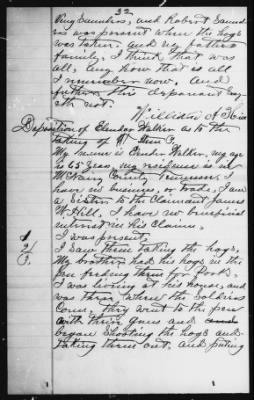 32
King Saunders, and Robert Saund-
ers was present when the hogs
was taken. and my fathers
family, I think that was
all, any how that is all
I remember now. And
further this deponent Say-
eth not.
William A Hill
Deposition of Elender Walker as to the
taking of
My name is Elender Walker, my age
is 65 years, my residence is in
McNairy County Tennessee. I
have no business, or trade, I am
a Sister to the Claimant James
W. Hill, I have no beneficial
interest in his Claim.
I was present.
I saw them taking the hogs,
My brother had his hogs in the
pen feeding them for Pork.
I was living at his house, and
was there when the Soldiers
Come, they went to the pen
with their guns and
began Shooting the hogs and
taking them out, and puting
1
2
3